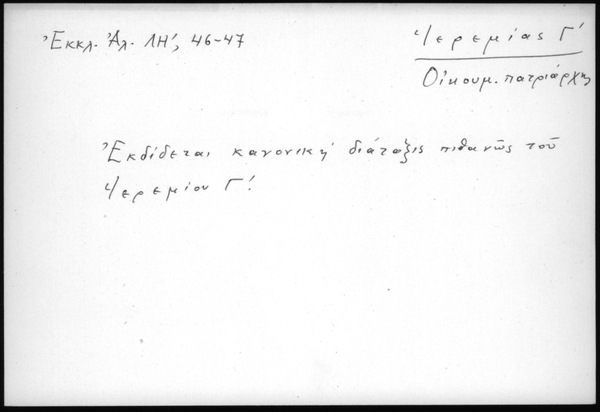 Ἐκκλ. Ἀλ. ΛΗ', 46-47
Ἱερεμίας Γ'
Οἰκουμ. πατριάρχης
Ἐκδίδεται κανονική διάταξις πιθανῶς τοῦ
Ἱερεμίου Γ'.